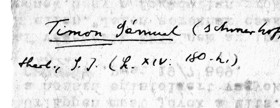 Timon Sámuel (schmerhof
theol., S. J. (L. XIV. 180. h.)